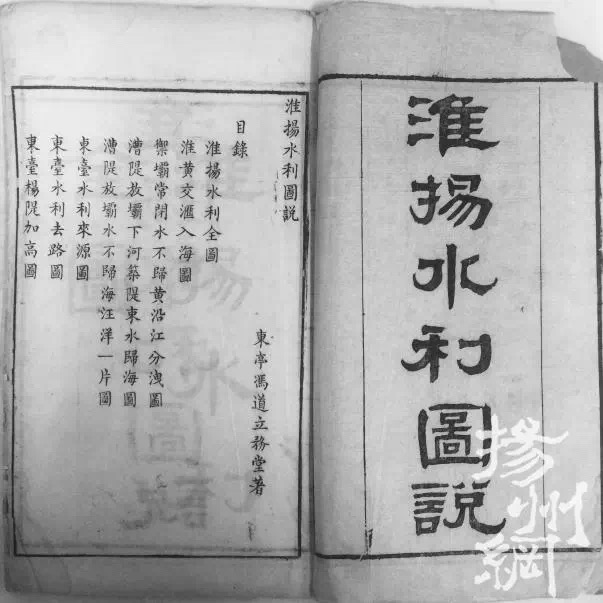 淮揚水利圖説
淮揚水利圖說
東亭馮道立務堂著
目錄
淮揚水利全圖
淮黄交滙入海圖
禦壩常閉水不歸黄沿江分洩圖
漕隄放壩下河築隄束水歸海圖
漕隄放壩水不歸海汪洋一片圖
東臺水利來源圖
東臺水利去路圖
東臺楊隄加高圖
揚州網